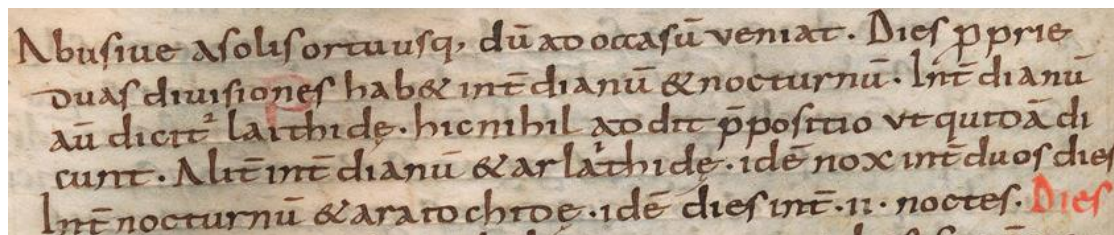 Abusiue asolis ortu usq, dū ad occasū veniat. Dies ꝓprie
duas diuisiones hab& int̄ dianū & nocturnū. Int̄ dianū
aū dicit² laithidę. hic nihil addit p̄positio vt quidā di
cunt. Alit̄ int̄ dianū & ar lathidę. idē nox int̄ duos dies
Int̄ nocturnū & araidchidę. idē dies int̄ .ii. noctes. Dies